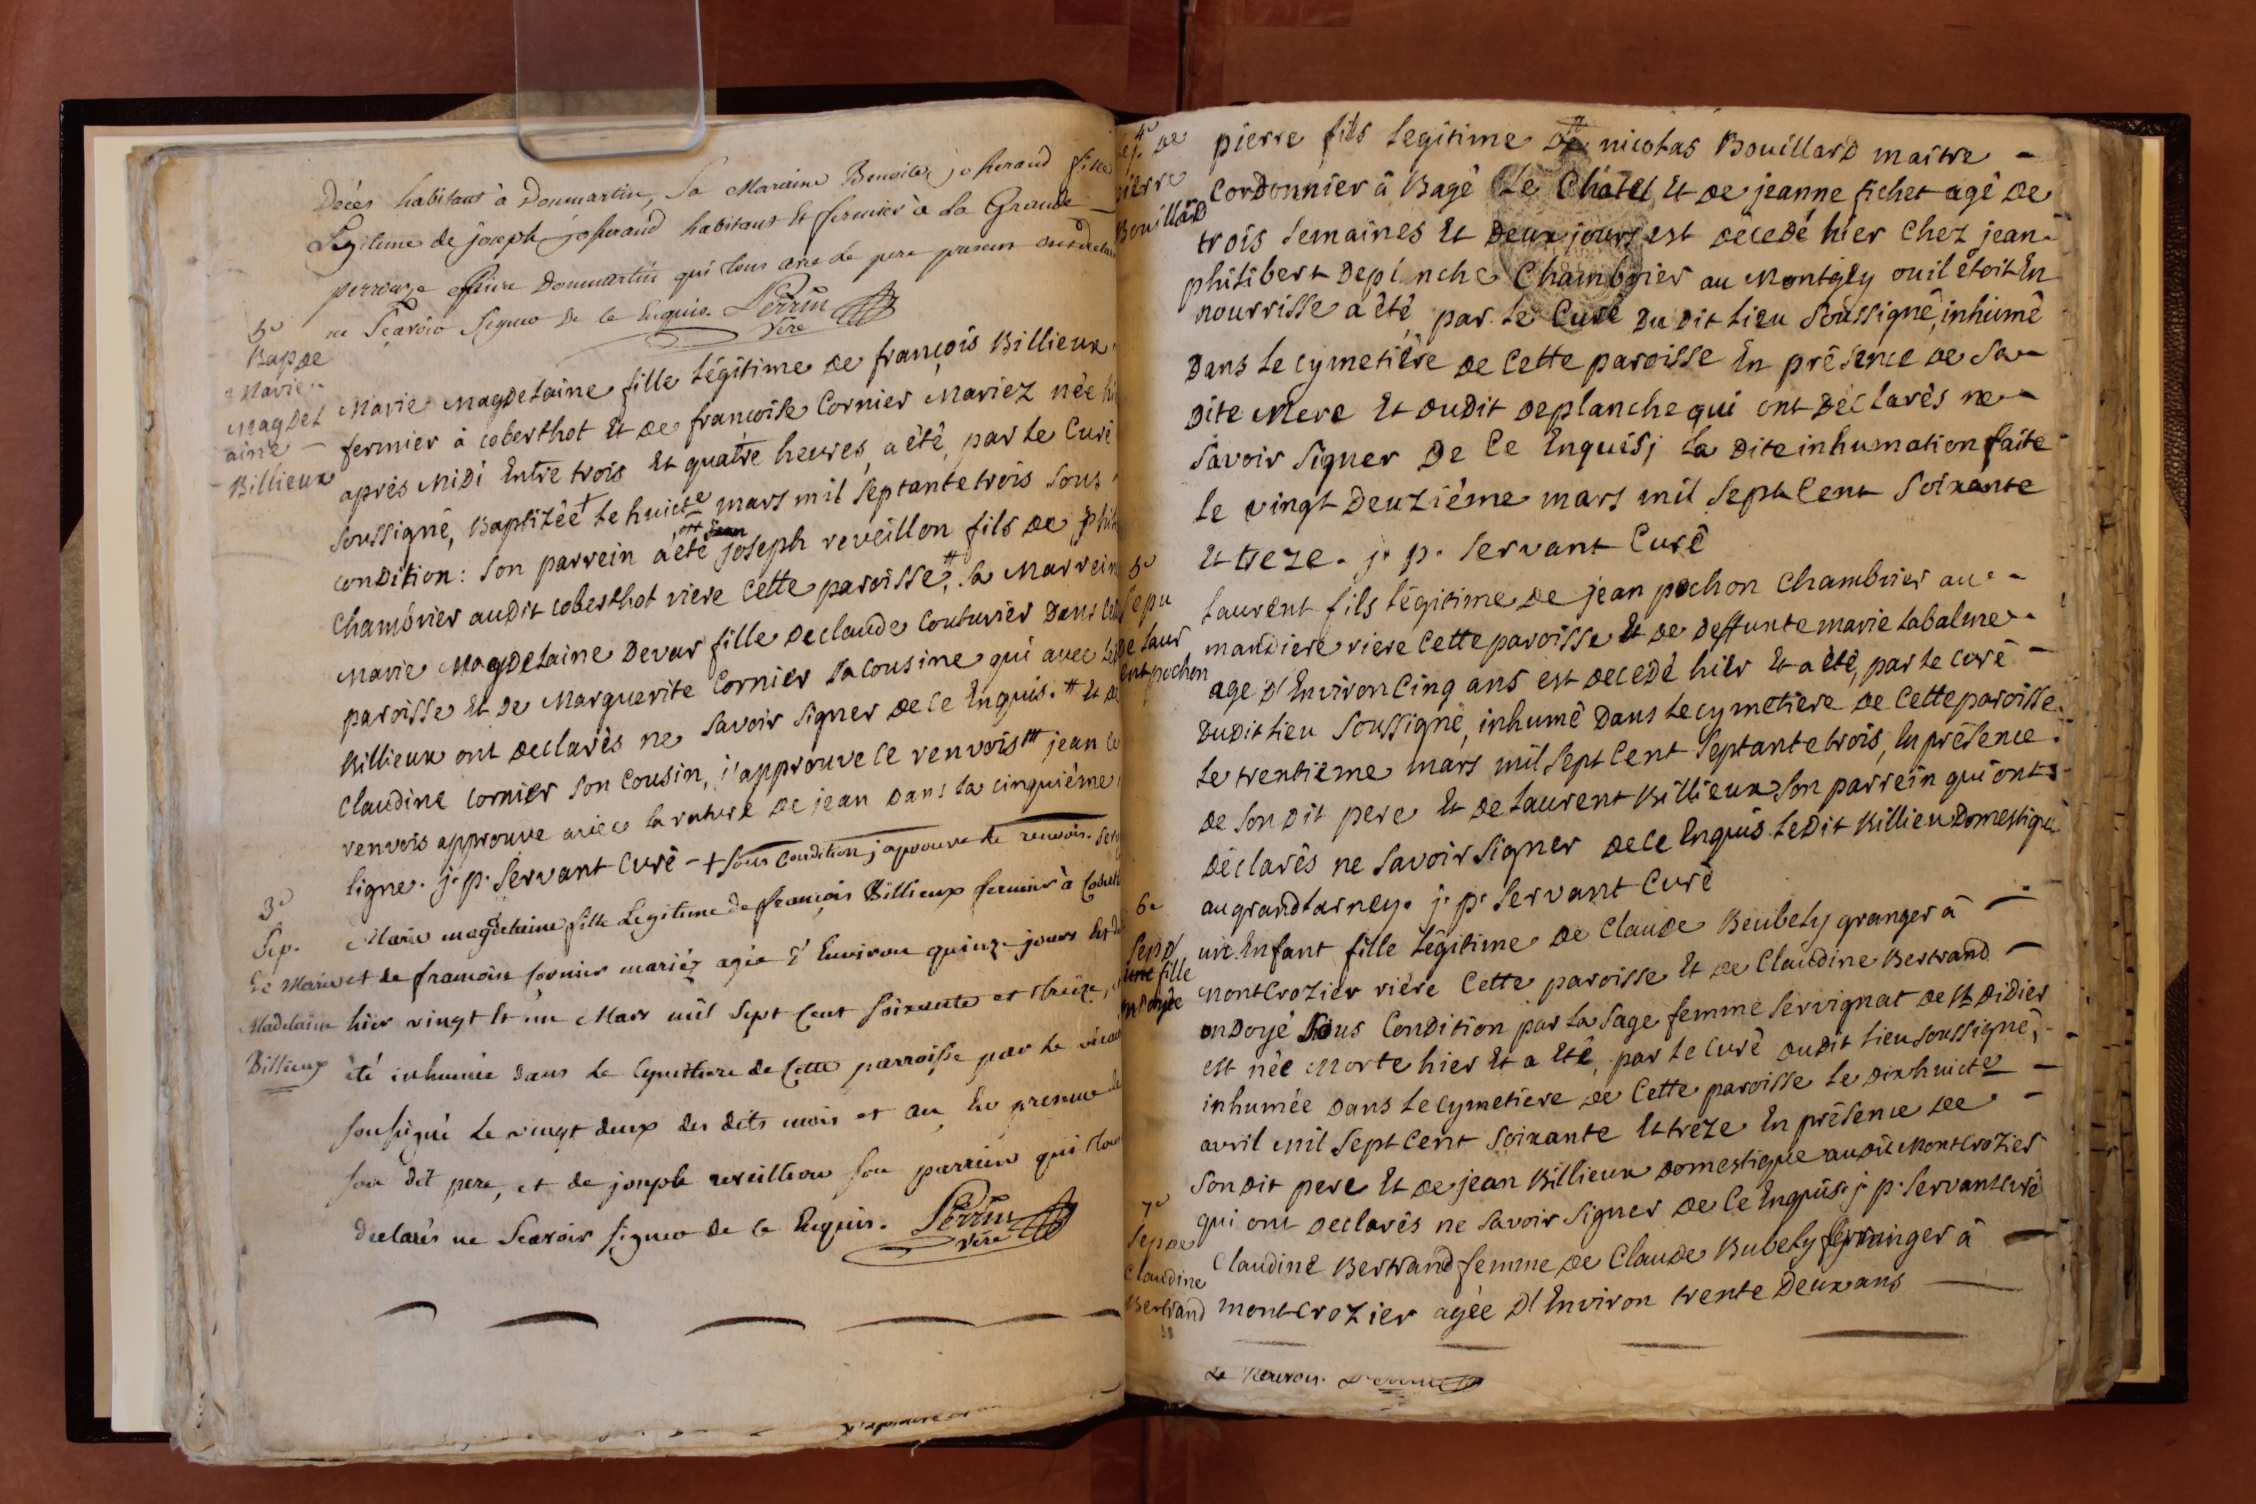 Décés habitant à Donmartin, sa Maraine Benoite joherand fille
Legitime de joseph joherand habitant Et fermier à La Grande
perrouze rière Donmartin qui tous avec le pere present ont déclaré
ne Sçavoir Signer de ce Enquis. Perrin
Vire
5e
Bap de
Marie
Magdel
aine
Billieux
Marie Magdelaine fille légitime de françois Billieux
fermier à coberthot Et de françoise Cornier Mariez née hier
après Midi Entre trois Et quatre heures, a été, par le Curé
soussigné, Baptizée + le huicte mars mil septantetrois sous
condition : son parrein a été Jean joseph reveillon fils de phili
Chambrier audit coberthot riere cette paroisse,# sa Marreine
Marie Magdelaine Devar fille de claude Couturier Dans cette
paroisse Et de Marguerite Cornier sa cousine qui avec ledit
Billieux ont declarés ne savoir signer de ce Enquis. # Et de
Claudine Cornier son cousin, j'approuve ce renvois ## jean ce
renvois approuvé avec la rature de jean Dans la cinquième
ligne. j. p. servant Curé - + sous condition j'aprouve le renvoir. serv
3e
Sep.
de Marie
Madelaine
Billieux
Marie magdelaine fille Legitime de françois Billieux fermier à Cobert
et de francoise Cornier mariéz agée d'Environ quinze jours décédée
hier vingt et un Mars mil Sept Cent soixante et treize, a
été inhumée dans le Cymetiere de Cette parroisse par le vicaire
soussigné le vingt deux des dits mois et an En presence de
son dit pere, et de joseph reveillion son parrein qui tous
declarés ne Scavoir signer de ce Enquis. Perrin
Vire
4e
Sep. de
pierre
Bouillard
pierre fils legitime de nicolas Bouillard maitre
cordonnier â Bagé Le Châtel Et de jeanne fichet agé de
trois semaines Et Deux jours est decedé hier chez jean
philibert deplanche Chambrier au Montgey ou il étoit En
nourrisse a été, par le Curé du dit lieu soussigné, inhumé
Dans le cymetière de cette paroisse En présence de sa
dite Mere Et dudit deplanche qui ont déclarés ne
savoir signer de ce Enquis; la dite inhumation faite
le vingt deuzième mars mil sept cent soixante
Et treze. j. p. servant Curé
5e
Sepu
de laur
ent pochon
laurent fils légitime de jean pochon Chambrier au
mandiere riere cette paroisse Et de deffunte marie labalme
age d'Environ Cinq ans est decedé hier Et a été, par le curé
dudit lieu soussigné, inhumé Dans le cymetière de cette paroisse
Le trentième mars mil sept cent septantetrois, En présence
de son dit pere Et de laurent Billieux son parrein qui ont
déclarés ne savoir signer de ce Enquis le dit Billieu Domestique
au grand tarney. j. p. servant Curé
6e
Sep d'
une fille
ondoyée
une Enfant fille légitime de Claude Beubely granger â
montCrozier rière cette paroisse Et de Claudine Bertrand
ondoyé sous Condition par la sage femme servignat de st Didier
est née Morte hier Et a Eté, par le curé dudit lieu soussigné,
inhumée dans le cymetiere de Cette paroisse le dixhuicte
avril Mil sept cent soixante Et treze En présence de
son dit pere Et de jean Billieux domestique audit MontCrozier
qui ont declarés ne savoir signer de Ce Enquis. j. p. servant curé
7e
Sep de
Claudine
Bertrand
Claudine Bertrand femme de Claude Bubely granger â
montCrozier agée d'Environ trente Deux ans
Le Renvois.